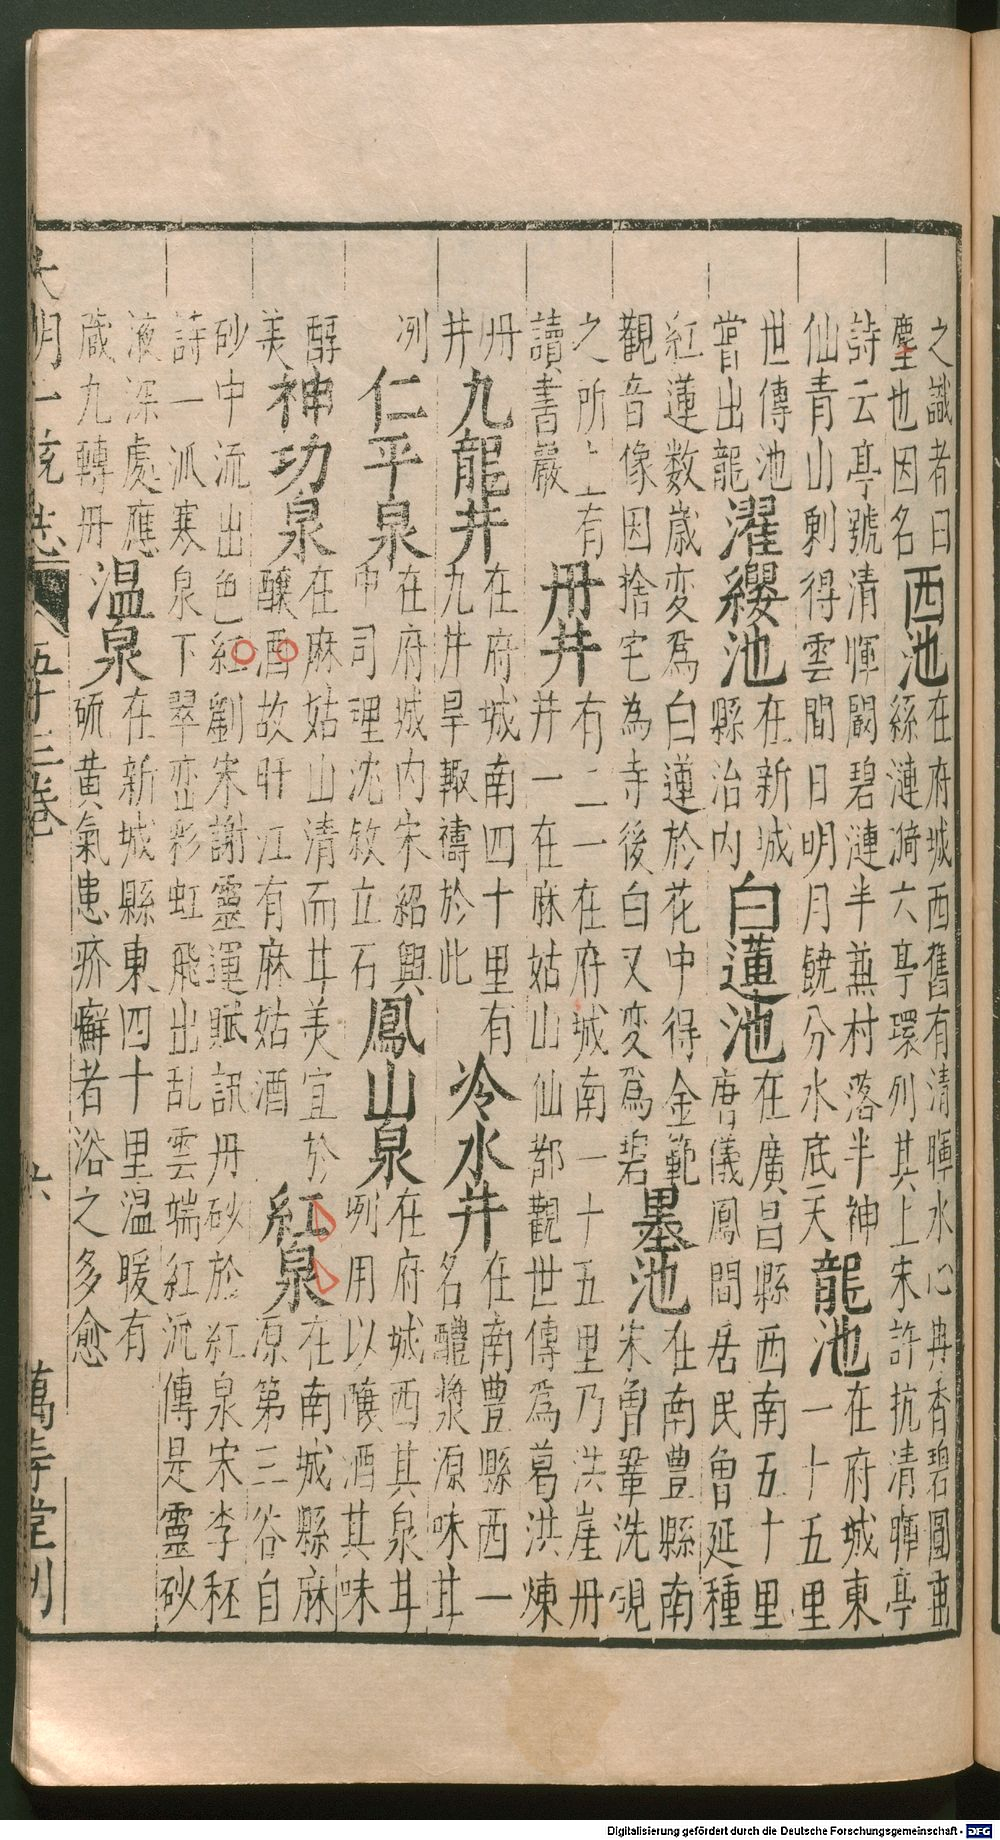 之識者曰
塵也因名
西池
在府城西舊有清暉水心冉香碧圓
絲漣漪六亭環列其上宋許抗清暉亭
詩云亭號清暉闢碧漣半蕪村落半神
仙青山剩得雲間日明月饒分水底天
龍池
在府城東
一十五里
世傳池
嘗出龍
濯纓池
在新城
縣治内
白蓮池
在廣昌縣西南五十里
唐儀鳳間居民曾延種
紅蓮数歲变爲白蓮於花中得金範
觀音像因捨宅為寺後白又变爲碧
墨池
在南豊縣南
宋曾鞏洗硯
之所上有
讀書巖
丹井
有二一在府城南一十五里乃洪崖丹
井一在麻姑山仙都觀世傳爲葛洪煉
丹
井
九龍井
在府城南四十里有
九井旱輙禱於此
冷水井
在南豊縣西一
名醴漿源味甘
冽
仁平泉
在府城内宋紹興
中司理沈敘立石
鳳山泉
在府城西其泉甘
冽用以釀酒其味
醇
美
神功泉
在麻姑山清而甘美宜於
釀酒故旴江有麻姑酒
紅泉
在南城縣麻
源第三谷自
砂中流出色紅劉宋謝靈運賦訊丹砂於紅泉宋李秠
詩一派寒泉下翠峦彩虹飛出乱雲端紅流傳是靈砂
液深處應
蔵九轉丹
温泉
在新城縣東四十里温暖有
硫黄氣患疥癬者浴之多愈
大明一統志 五十三卷 六 萬壽堂刊
Digitalisierung gefördert durch die Deutsche Forschungsgemeinschaft - DFG